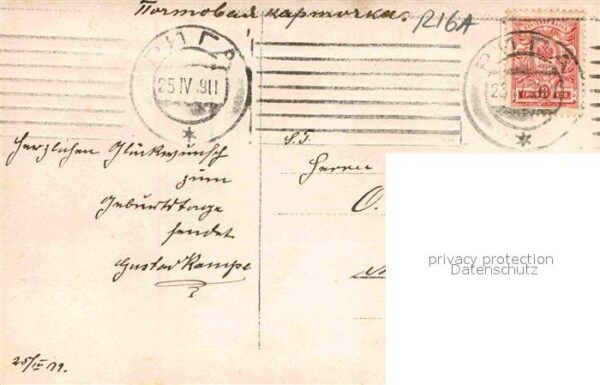 Почтовая карточка.
R16A
РИГА
25 IV 1911
РИГА
Herzlichen Glückwunsch
zum
Geburtstage
sendet
Gustav Kampe
S. T.
Herrn
O.
privacy protection
Datenschutz
25/IV 11.